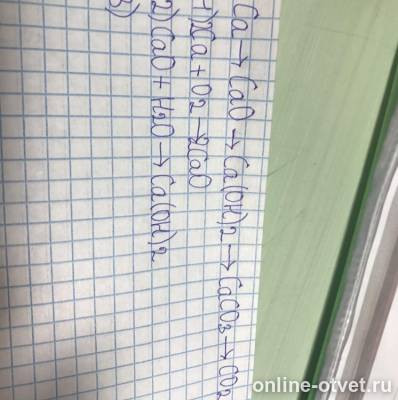 Ca → CaO → Ca(OH)2 → CaCO3 → CO2
1) 2Ca + O2 → 2CaO
2) CaO + H2O → Ca(OH)2
3)
online-otvet.ru